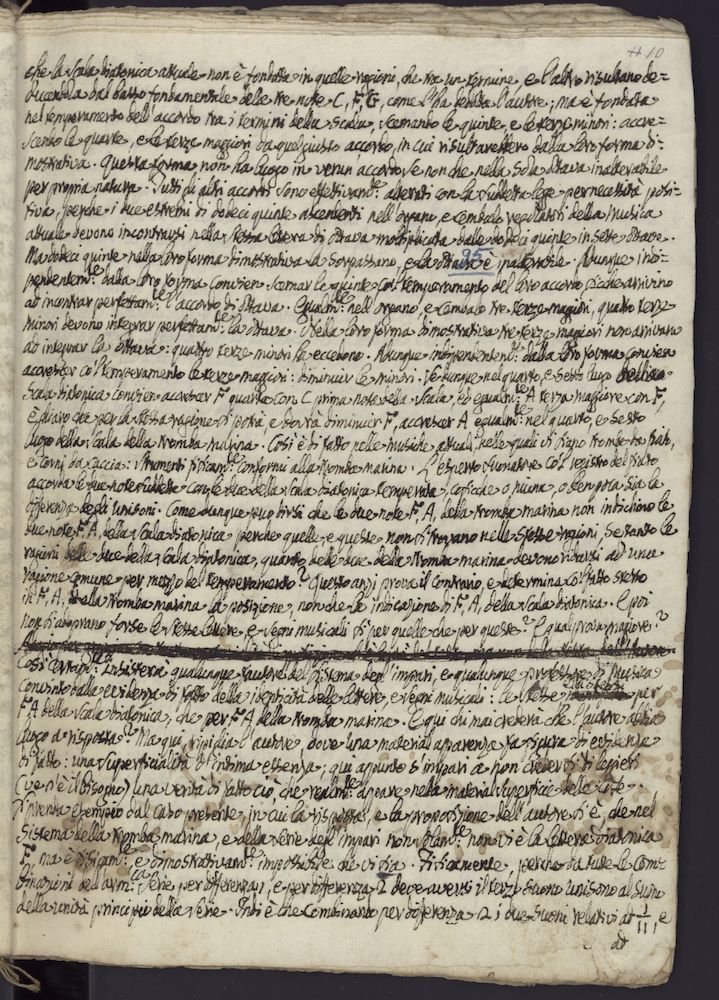 # 10
che la Scala diatonica attuale non è fondata in quelle ragioni, che tra un termine, e l'altro risultano de=
ducendola dal basso fondamentale delle tre note C, F, G, come l'ha dedotta l'autore; ma è fondata
nel temperamento dell'accordo tra i termini della Scala, scemando le quinte, e le terze minori: accre=
scendo le quarte, e le terze maggiori da quel giusto accordo, in cui risulterebbero dalla loro forma di=
mostrativa. Questa forma non ha luogo in verun accordo se non che nella sola ottava inalterabile
per propria natura. Tutti gli altri accordi sono effettivam.te alterati con la suddetta lege per necessità posi=
tiva, perche i due estremi di dodeci quinte ascendenti nell'organo, e cembalo regolatori della Musica
attuale devono incontrarsi nella stessa lettera di ottava moltiplicata dalle dodeci quinte in sette ottave.
Ma dodeci quinte nella loro forma dimostrativa la sorpassano, e la ottava è inalterabile. Adunque indi=
95
pendentem.te dalla loro forma convien scemar le quinte col temperamento del loro accordo, sicche arrivino
ad incontrar perfettam.te l'accordo di ottava. Egualm.te nell'organo, e cembalo tre terze magiori, quattro terze
minori devono integrar perfettam.te la ottava. Nella loro forma dimostrativa tre terze magiori non arrivano
ad integrar la ottava: quattro terze minori la eccedono. Adunque indipendentem.te dalla loro forma convien
accrescer col temperamento le terze maggiori: diminuir le minori. Se dunque nel quarto, e sesto luogo della
Scala diatonica convien accrescer F quarta con C prima nota della Scala, ed egualm.te A terza magiore con F,
è chiaro che per la stessa ragione si potrà, e dovrà diminuir F, accrescer A egualm.te nel quarto, e sesto
luogo della Scala della tromba marina. Così è di fatto nelle musiche attuali, nelle quali vi siano trombe da fiato,
e corni da caccia: istrumenti fisicam.te conformi alla tromba marina. L'esperto suonatore col registro del fiato
accorda le due note suddette con le due della Scala diatonica temperata, cosicche o niuna, o ben poca sia la
differenza degli unisoni. Come dunque può dirsi che le due note F, A, della tromba marina non indichino le
due note F, A, della Scala diatonica perche quelle, e queste non si trovano nelle stesse ragioni, se tanto le
ragioni delle due della Scala diatonica, quanto delle due della tromba marina devono ridursi ad una
ragione comune per mezzo del temperamento? Questo anzi prova il contrario, e determina col fatto stesso
in F, A, della tromba marina la posizione, non che la indicazione di F, A, della Scala diatonica. E poi
non si adoprano forse le stesse lettere, e segni musicali sì per quelle che per queste? E qual prova magiore?
Così certam.te insisterà qualunque fautore del sistema degl'impari, e qualunque professore di Musica
convinto dalla evidenza di fatto della identicità delle lettere, e segni musicali: le stesse per
F, A della Scala diatonica, che per F, A della tromba marina. E qui chi mai crederà che l'autore abbia
luogo a risposta? Ma qui, ripiglia l'autore, dove una material apparenza fa figura di evidenza
di fatto: una superficialità d'intima essenza; qui appunto s'impari a non creder sì di legieri
(ve n'è il bisogno) una verità di fatto ciò, che realm.te appare nella material superficie delle cose.
Si prenda esempio dal caso presente, in cui la risposta, e la proposizione dell'autore si è, che nel
Sistema della tromba marina, e della serie degl'impari non solam.te non vi è la lettera diatonica
F, ma è fisicam.te e dimostrativam.te impossibile che vi sia. Fisicamente, perche da tutte le com=
binazioni dell'arm.ca serie per differenza 1, e per differenza 2 deve aversi il terzo suono unisono al suono
della unità principio della serie. Indi è che combinando per differenza 2 i due suoni relativi ad 1/11 e
ad